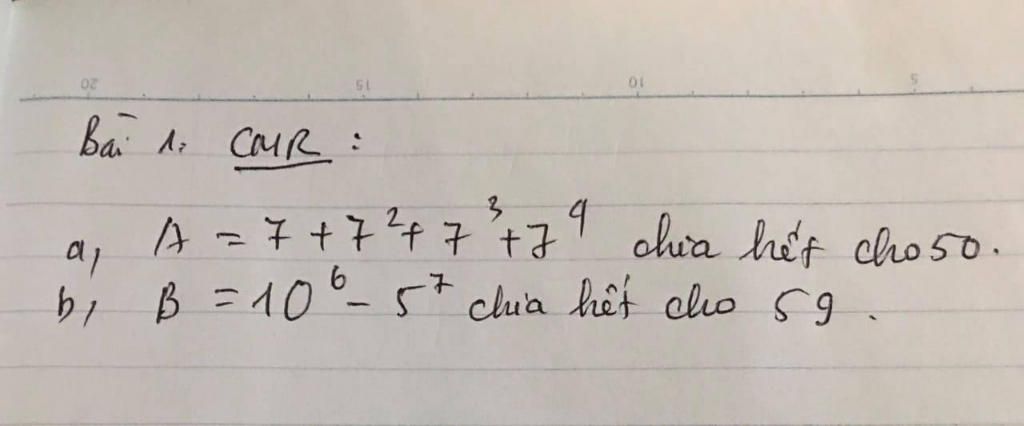 20 15 10 5
Bài 1: CMR :
a, A = 7 + 7² + 7³ + 7⁴ chia hết cho 50.
b, B = 10⁶ - 5⁷ chia hết cho 59.